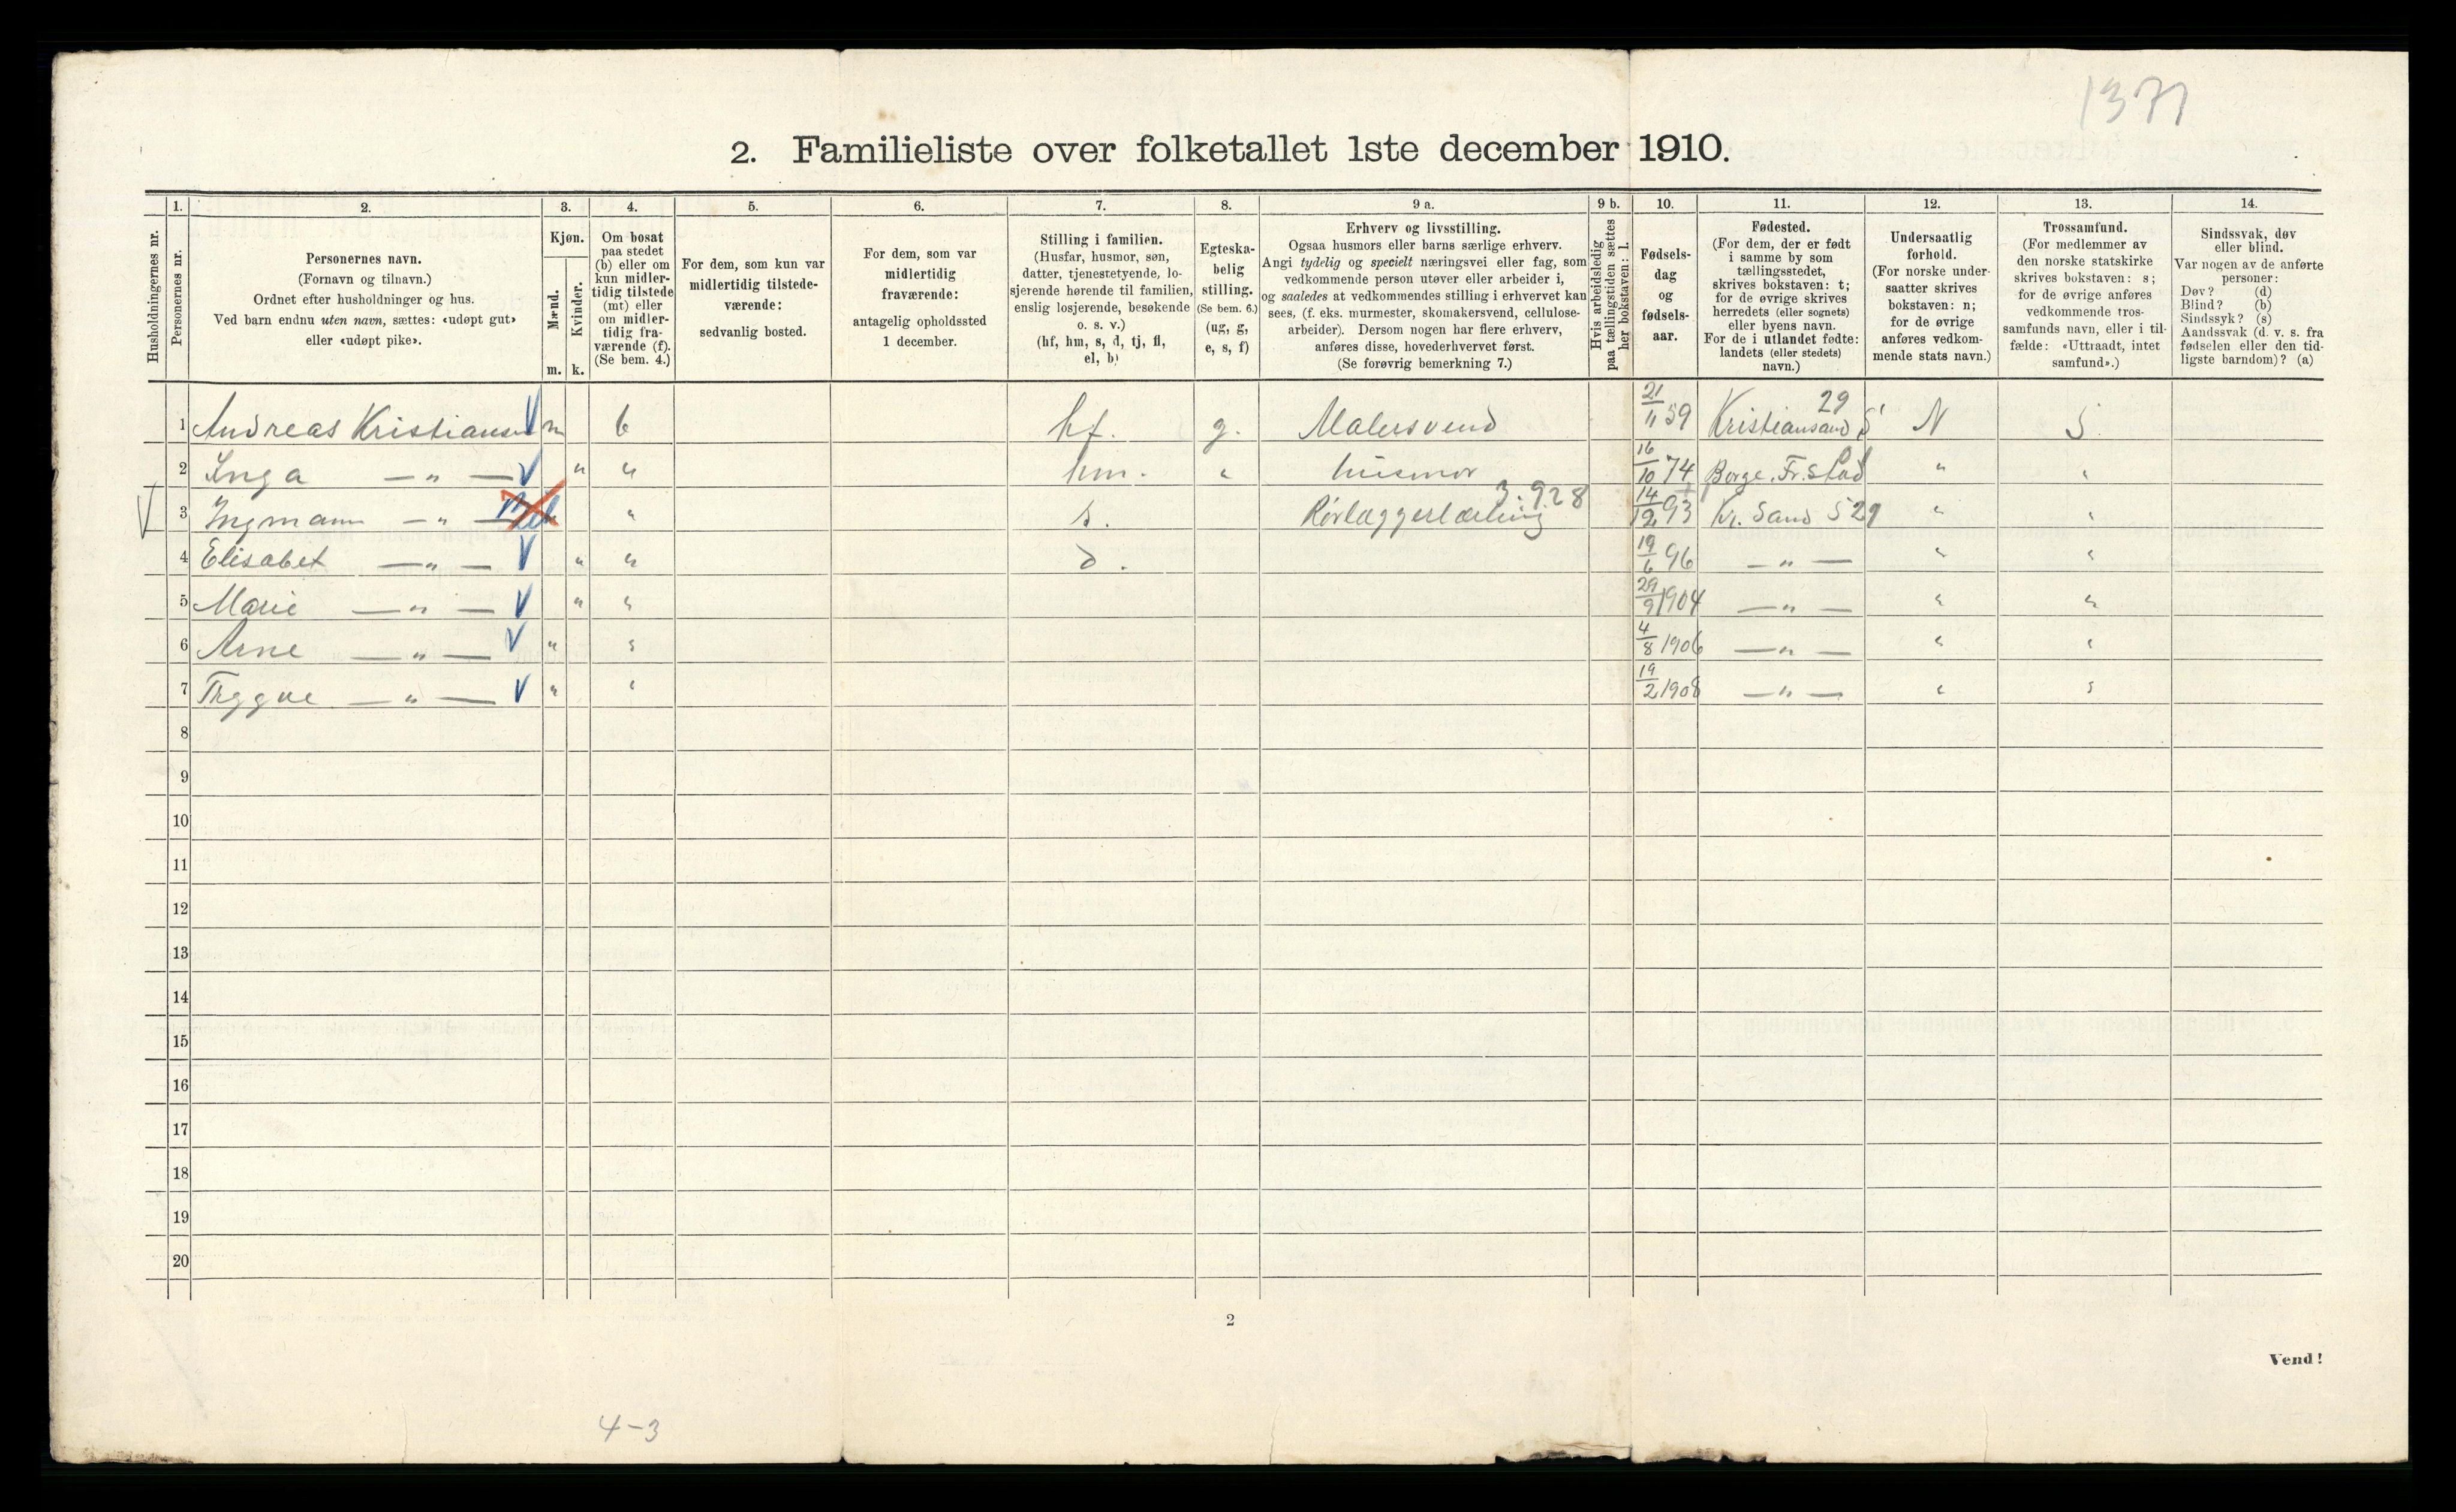 1371
2. Familieliste over folketallet 1ste december 1910.
Husholdningernes nr.
1.
Personernes nr.
2.
Personernes navn.
(Fornavn og tilnavn.)
Ordnet efter husholdninger og hus.
Ved barn endnu uten navn, sættes: «udøpt gut»
eller «udøpt pike».
3.
Kjøn.
Mænd.
Kvinder.
m. k.
4.
Om bosat
paa stedet
(b) eller om
kun midler-
tidig tilstede
(mt) eller
om midler-
tidig fra-
værende (f).
(Se bem. 4.)
5.
For dem, som kun var
midlertidig tilstede-
værende:
sedvanlig bosted.
6.
For dem, som var
midlertidig
fraværende:
antagelig opholdssted
1 december.
7.
Stilling i familien.
(Husfar, husmor, søn,
datter, tjenestetyende, lo-
sjerende hørende til familien,
enslig losjerende, besøkende
o. s. v.)
(hf, hm, s, d, tj, fl,
el, b)
8.
Egteska-
belig
stilling.
(Se bem. 6.)
(ug, g,
e, s, f)
9 a.
Erhverv og livsstilling.
Ogsaa husmors eller barns særlige erhverv.
Angi tydelig og specielt næringsvei eller fag, som
vedkommende person utøver eller arbeider i,
og saaledes at vedkommendes stilling i erhvervet kan
sees, (f. eks. murmester, skomakersvend, cellulose-
arbeider). Dersom nogen har flere erhverv,
anføres disse, hovederhvervet først.
(Se forøvrig bemerkning 7.)
9 b.
Hvis arbeidsledig
paa tællingstiden sættes
her bokstaven: l.
10.
Fødsels-
dag
og
fødsels-
aar.
11.
Fødested.
(For dem, der er født
i samme by som
tællingsstedet,
skrives bokstaven: t;
for de øvrige skrives
herredets (eller sognets)
eller byens navn.
For de i utlandet fødte:
landets (eller stedets)
navn.)
12.
Undersaatlig
forhold.
(For norske under-
saatter skrives
bokstaven: n;
for de øvrige
anføres vedkom-
mende stats navn.)
13.
Trossamfund.
(For medlemmer av
den norske statskirke
skrives bokstaven: s;
for de øvrige anføres
vedkommende tros-
samfunds navn, eller i til-
fælde: «Uttraadt, intet
samfund».)
14.
Sindssvak, døv
eller blind.
Var nogen av de anførte
personer:
Døv? (d)
Blind? (b)
Sindssyk? (s)
Aandssvak (d. v. s. fra
fødselen eller den tid-
ligste barndom)? (a)
1 Andreas Kristiansen m b hf. g. Malersvend 21/11 59 Kristiansand S 29 N S.
2 Inga — " — " " hm. " husmor 16/10 74 Borge. Fr.stad " "
3 Ingmann — " — " s. Rørlæggerlærling 3.928 14/12 93 Kr. Sand S 29 " "
4 Elisabet — " — " " d. 19/6 96 — " — " "
5 Marie — " — " " 29/9 1904 — " — " "
6 Arne — " — " " 4/8 1906 — " — " "
7 Thygve — " — " " 19/2 1908 — " — " "
8
9
10
11
12
13
14
15
16
17
18
19
20
2
Vend!
4-3